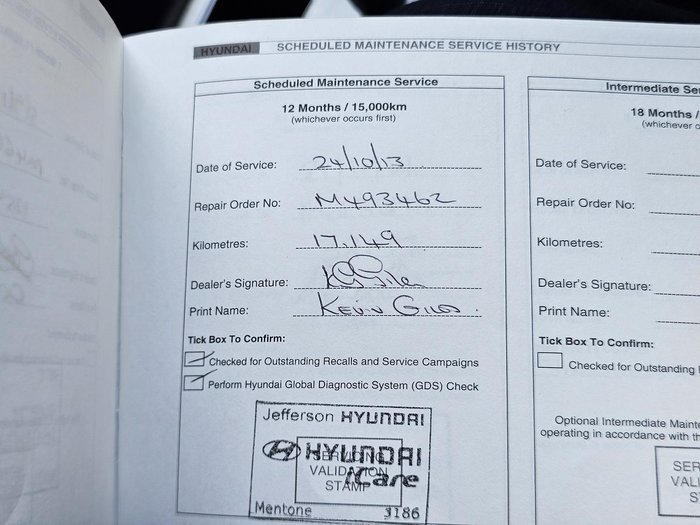 HYUNDAI SCHEDULED MAINTENANCE SERVICE HISTORY
Scheduled Maintenance Service
12 Months / 15,000km
(whichever occurs first)
Date of Service: 24/10/13
Repair Order No: M493462
Kilometres: 17,149
Dealer's Signature:
Print Name: Kevin Giles
Tick Box To Confirm:
Checked for Outstanding Recalls and Service Campaigns
Perform Hyundai Global Diagnostic System (GDS) Check
Jefferson HYUNDAI
HYUNDAI
iCare
SERVICING
VALIDATION
STAMP
Mentone 3186
Intermediate Ser
18 Months /
(whichever o
Date of Service:
Repair Order No:
Kilometres:
Dealer's Signature:
Print Name:
Tick Box To Confirm:
Checked for Outstanding
Optional Intermediate Mainte
operating in accordance with th
SER
VALI
S